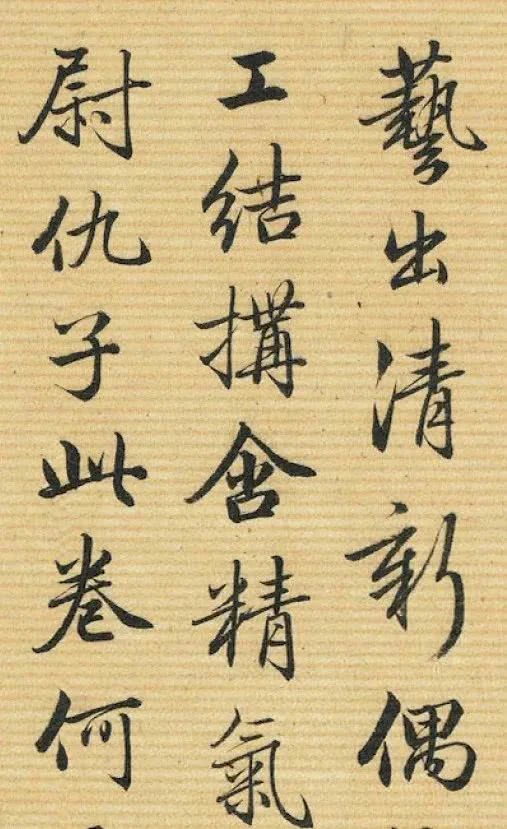 藝出清新偶
工結構含精氣
尉仇子此卷何